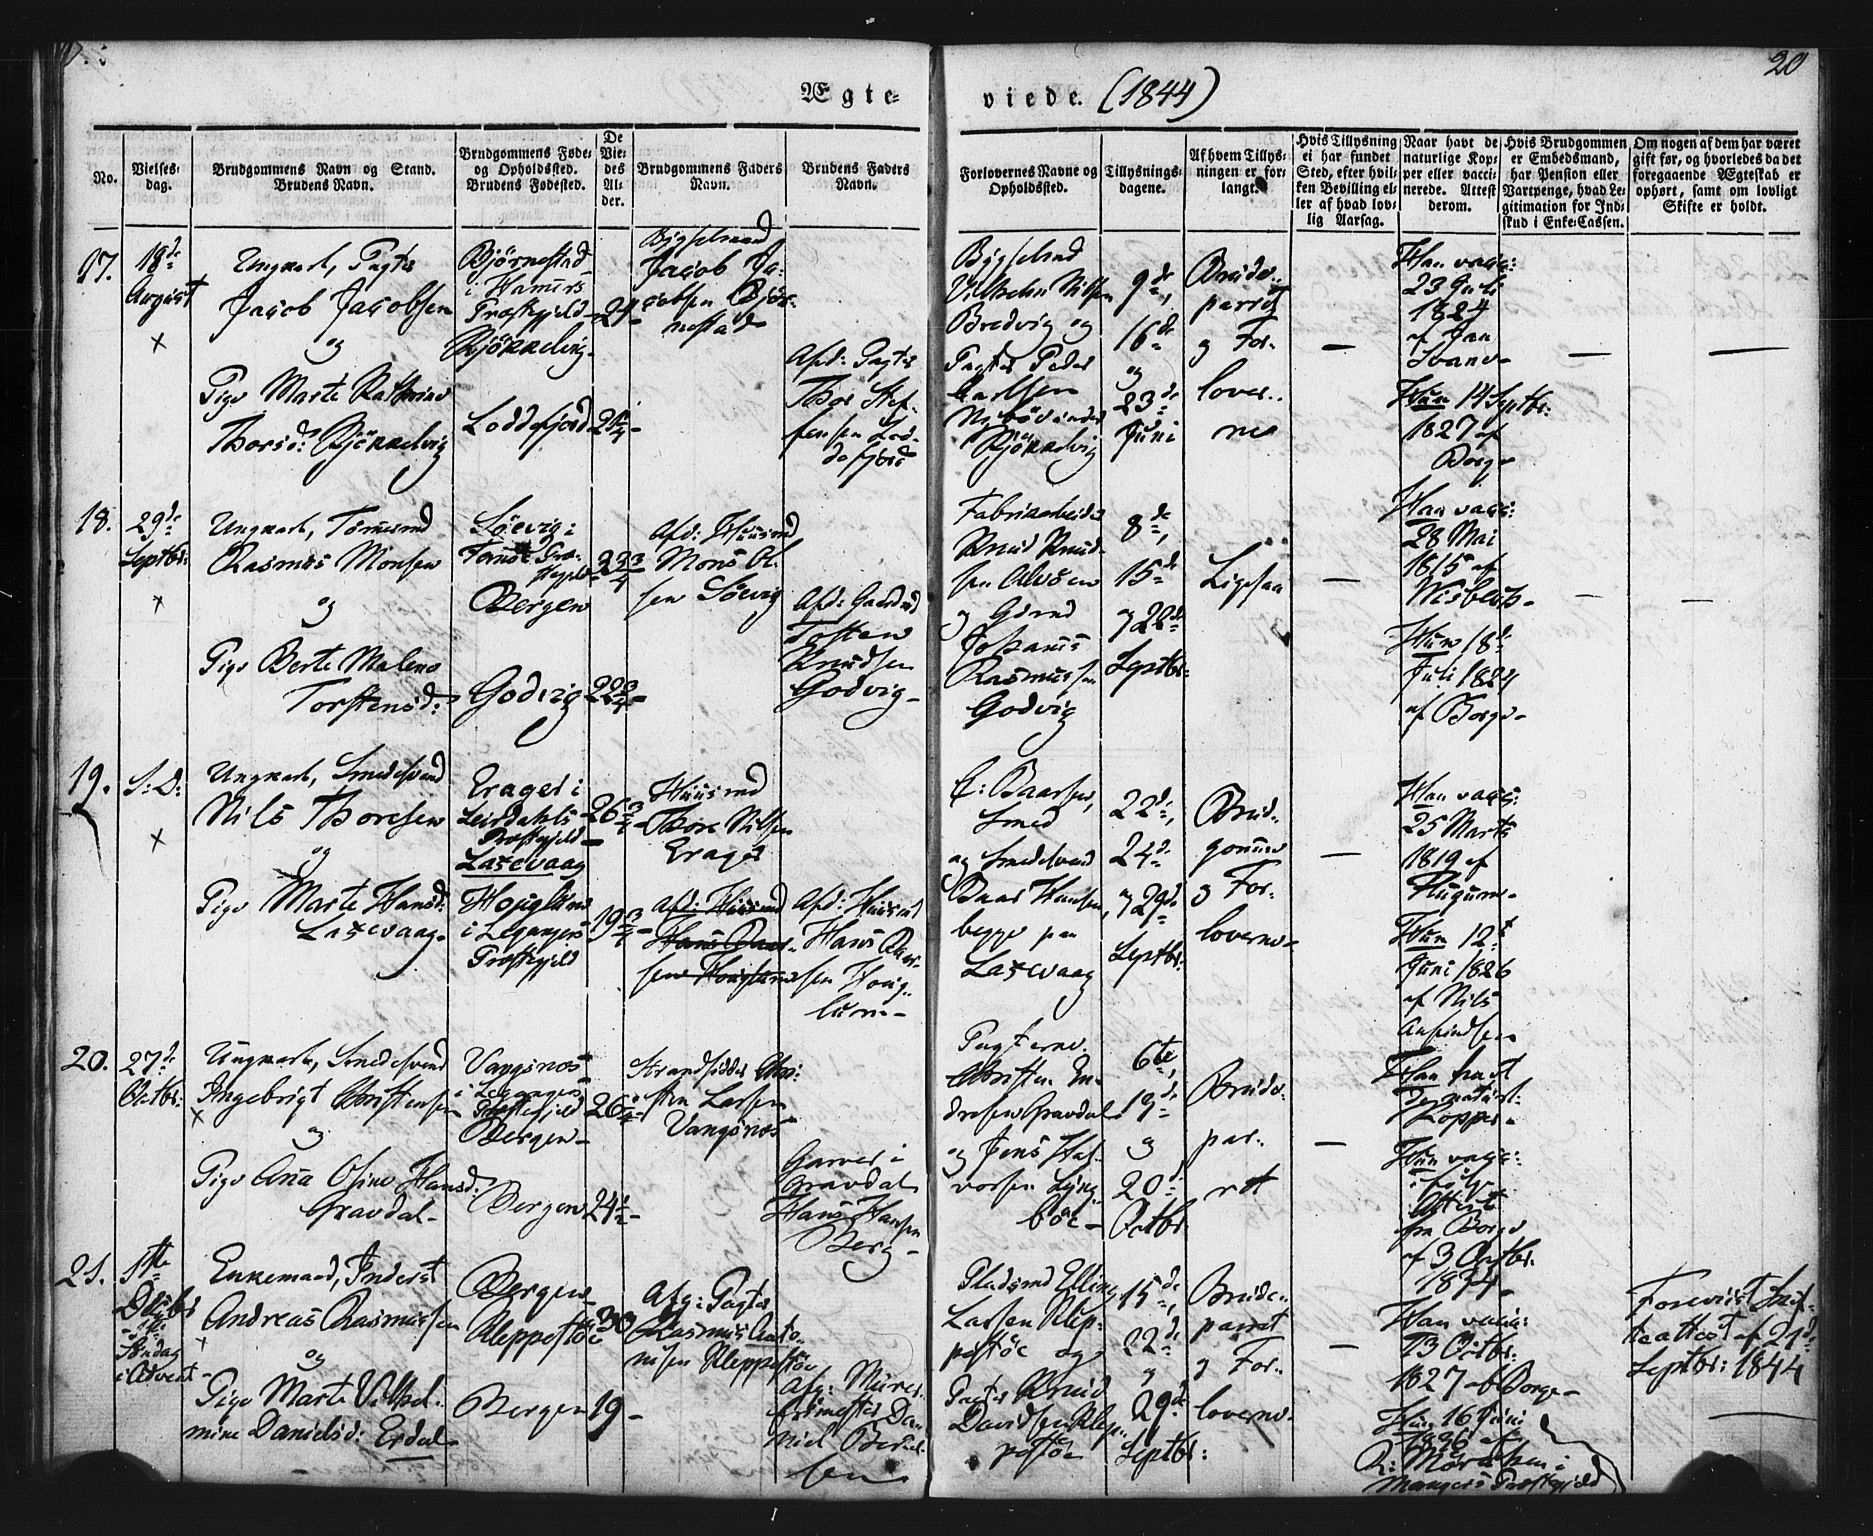 20
Ægte-
viede. (1844)
No.
Vielses-
dag.
Brudgommens Navn og Stand.
Brudens Navn.
Brudgommens Føde-
og Opholdssted.
Brudens Fødested.
De
Vie-
des
Al-
der.
Brudgommens Faders
Navn.
Brudens Faders
Navn.
Forlovernes Navne og
Opholdssted.
Tillysnings-
dagene.
Af hvem Tillys-
ningen er for-
langt.
Hvis Tillysning
ei har fundet
Sted, efter hvil-
ken Bevilling el-
ler af hvad lov-
lig Aarsag.
Naar havt de
naturlige Kop-
per eller vacci-
nerede. Attest
derom.
Hvis Brudgommen
er Embedsmand,
har Pension eller
Vartpenge, hvad Le-
gitimation for Ind-
skud i Enke-Cassen.
Om nogen af dem har været
gift før, og hvorledes da det
foregaaende Ægteskab er
ophørt, samt om lovligt
Skifte er holdt.
17.
18de
August
x
Ungkarl, Pagter
Jacob Jacobsen
og
Pige Marte Kathrine
Thorsd:
Bjørnestad
i
Præstegjeld
Loddefjord
Bygselmand
Jacob Ja-
cobsen Bjør-
nestad
Afd: Pagter
Thor Stef-
fensen Lod-
defjord
Bygselmd
Vilhelm Nilsen
Bredvig og
Pagter Peder
Carlsen
9de,
16de
og
23de
Juni
Brude-
parret
og For-
lover-
ne
Han vacc:
23 Juli
1824
af Jan
Svane
Hun 14 Septbr:
1827 af
Borge
18.
29de
Septbr:
x
Ungkarl, Tømmermd
Rasmus Monsen
og
Pige Berte Malene
Torstensd:
Søevig i
Bergen
Godvig
23 3/4
22 3/4
Afd: Huusmd
Mons Ol-
sen Søevig
Afd: Gaardmd
Tosten
Knudsen
Godvig
Fabrikarbeider
Knud Knud-
sen Alvøen
og Gdmd
Johannes
Rasmussen
Godvig
8de,
15de
og 22de
Septbr:
Ligesaa
Han vacc:
28 Mai
1815 af
Hun 18de
Juli 1824
af Borge
19.
S: D:
x
Ungkarl, Smedesvend
Nils Thoresen
og
Pige Marte Hansd:
Laxevaag
Erager i
Leirdahls
Præstegjeld
Laxevaag
Houglum
i Leganger
Præstegjeld
26 3/4
19 3/4
Huusmd
Thore Nilsen
Erager
Afd: Huusmd
Hans Baar-
sen Houglum
Afd: Huusmd
Hans Baar-
sen Houg-
lum
C: Baarsen,
Smed
og Smedesvend
Baar Hansen,
begge paa
Laxevaag
22de,
24de
og 29de
Septbr:
Brud-
gommen
og For-
loverne
Han vacc:
25 Marts
1819 af
Hun 12te
Juni 1826
af Nils
20.
27de
Octbr:
x
Ungkarl, Smedesvend
Ingebrigt Christensen
og
Pige Ana Osine Hansd:
Gravdal
Vangsnes
i Leganger
Præstegjeld
Bergen
Bergen
26 1/4
24 1/2
Strandsidder Chri-
sten Larsen
Vangsnes
Garver i
Gravdal
Hans Hansen
Berg
Pagterne
Christen En-
dresen Gravdal
og Jens Hal-
vorsen Lyng-
böe
6te,
13de
og
20de
Octbr
Brude-
par-
ret
Han havt
de naturl:
Kopper
Hun vacc:
i følge
Attest
fra Borge
af 3 Octbr:
1834
21.
1ste
Decbr
1ste
Søndag
i Advent
x
Enkemand, Inderst
Andreas Rasmussen
og
Pige Marte Vilhel-
mine Danielsd: Erdal
Bergen
Kleppestöe
Bergen
30
19
Afg: Pagter
Rasmus Anto-
nisen Kleppestöe
Afg: Murer-
Dan
niel Berent-
sen
Pladsmd Elling
Larsen Klep-
pestöe og
Pagter Knud
Davidsen Klep-
pestöe
15de,
22de
og
29de
Septbr:
Brude-
parret
og For-
loverne
Han vacc:
13 Octbr:
1827 af Borge
Hun 16 Juni
1826 af
Mangers Præstegjeld
Foreviist Skif-
teattest af 21de
Septbr: 1844